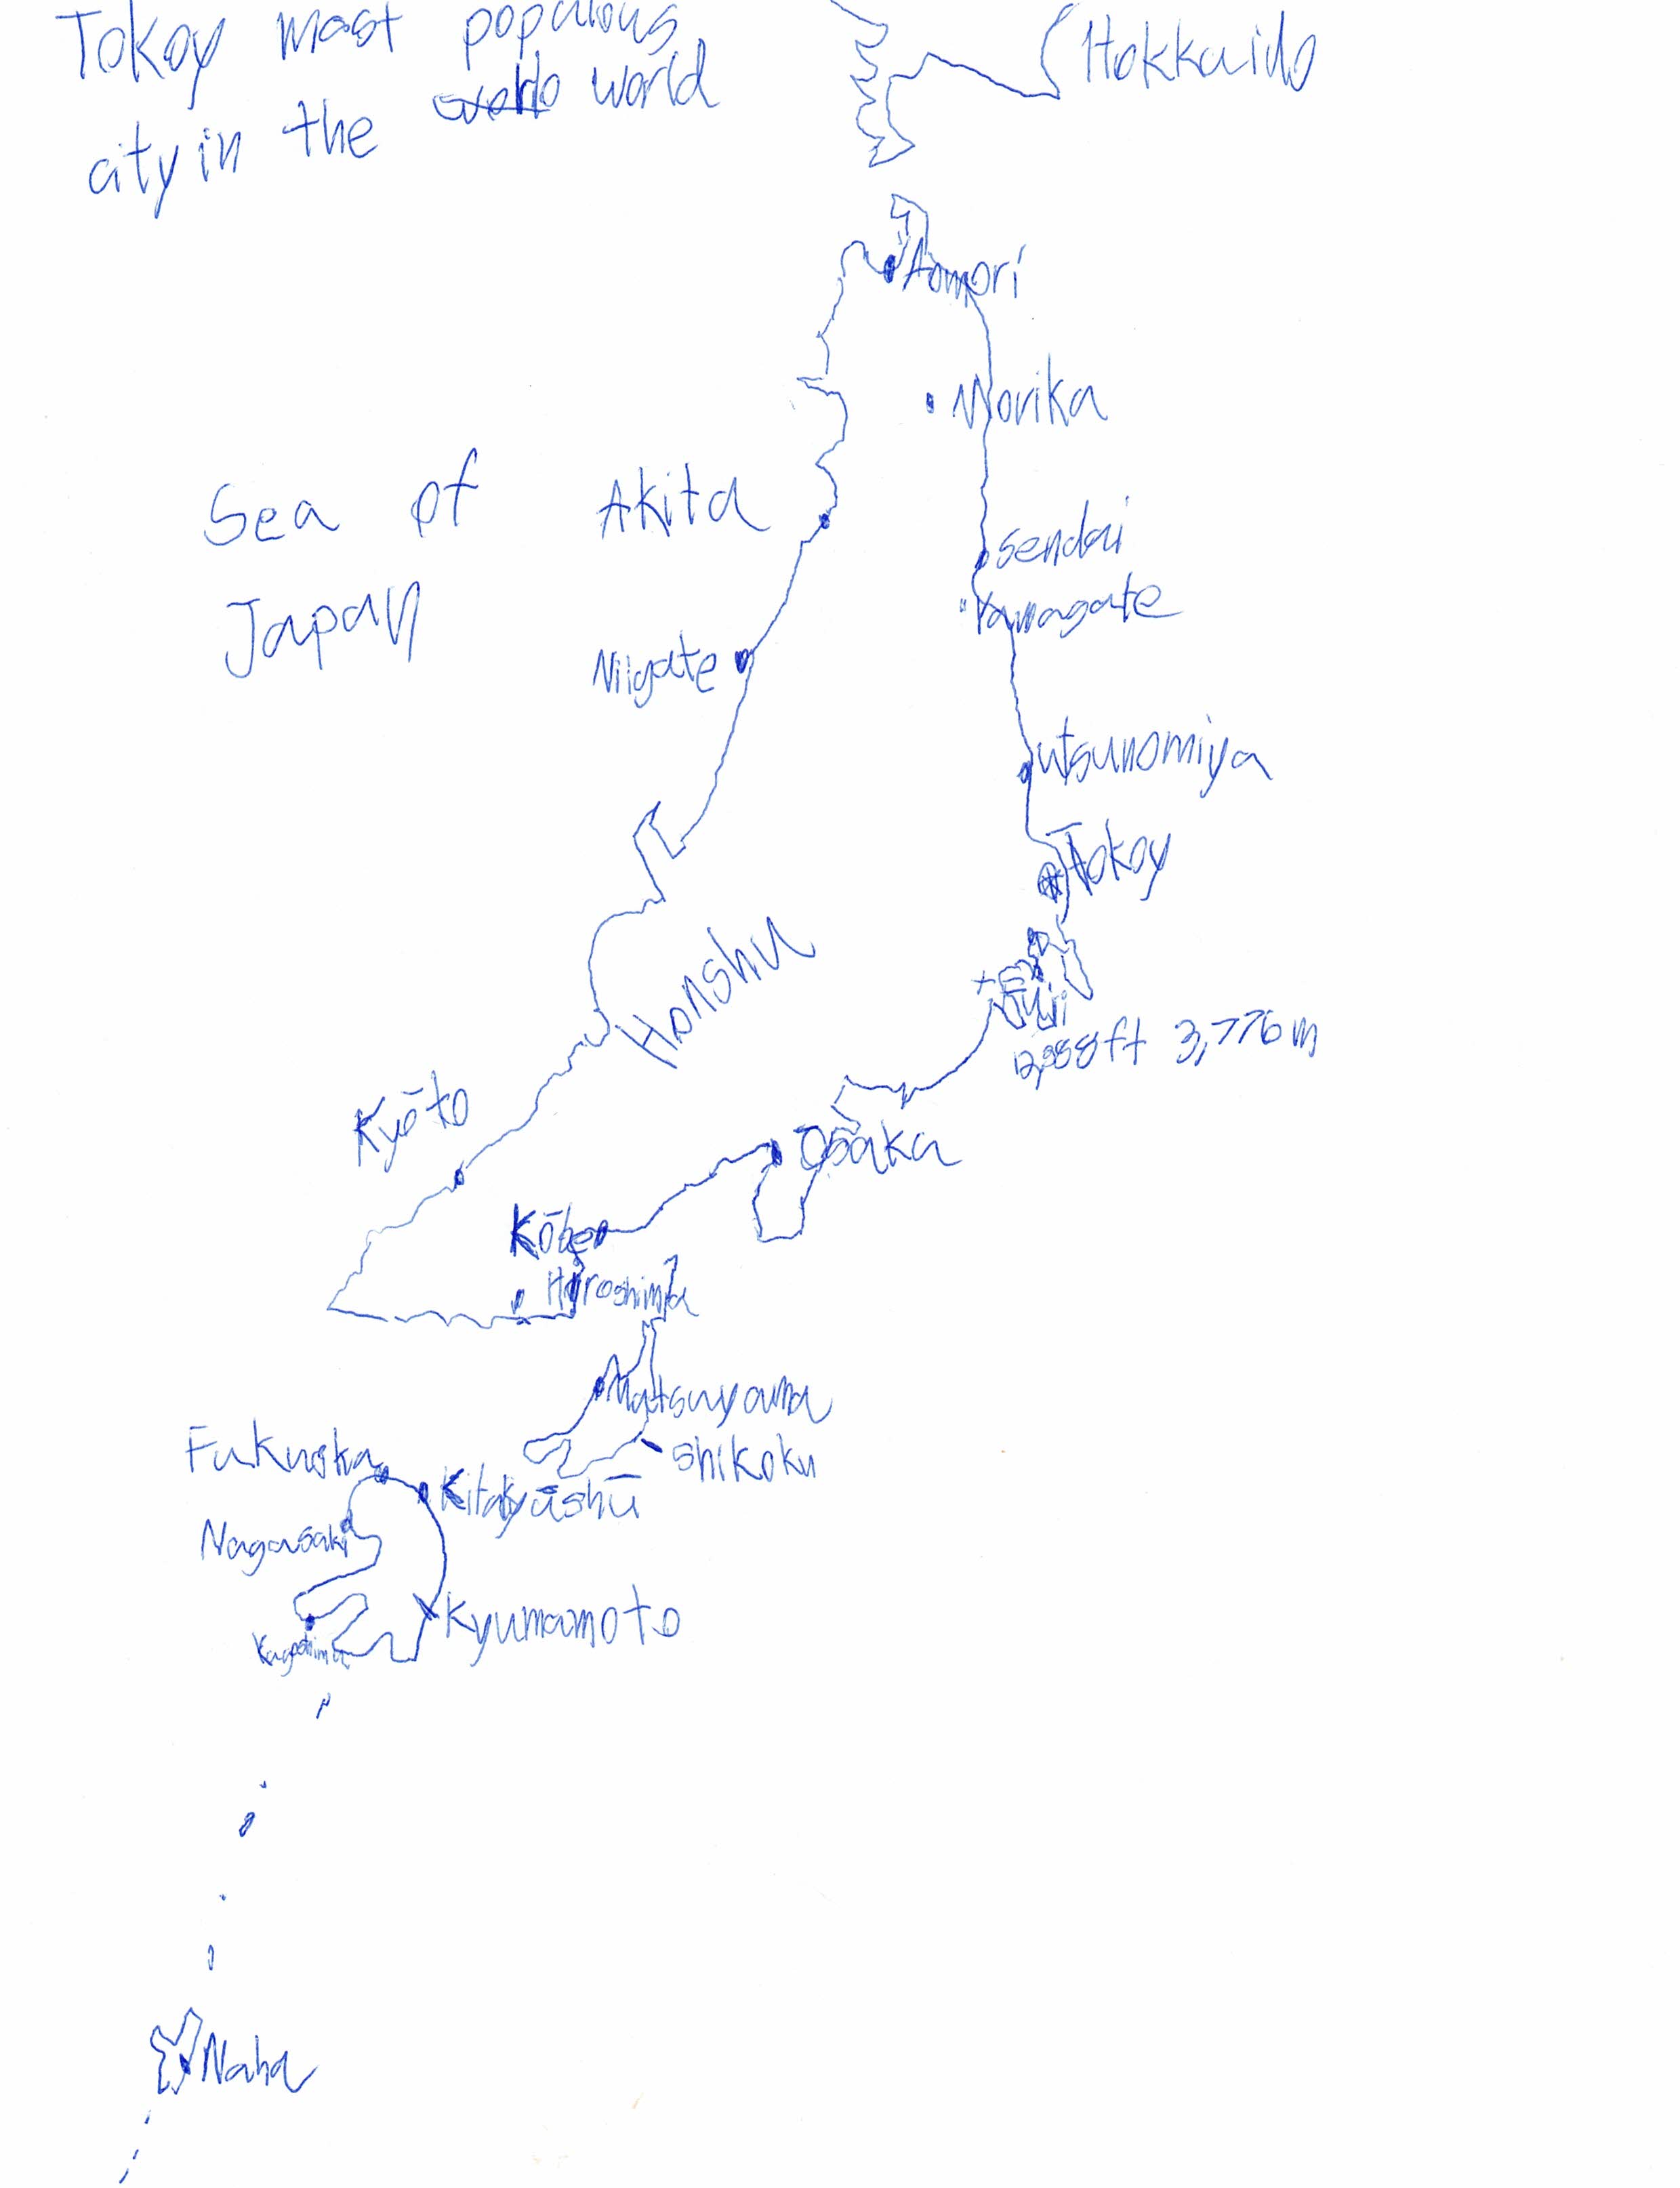 Tokoy most populous
city in the world
Hokkaido
Aomori
Morika
Sea of
Japan
Akita
Sendai
Yamagate
Niigate
Utsunomiya
Tokoy
Honshu
Fuji
3,776 m
Kyōto
Ōsaka
Kōbe
Hiroshima
Matsuyama
Shikoku
Fukuoka
Kitakyūshū
Nagasaki
Kyumamoto
Kagoshima
Naha